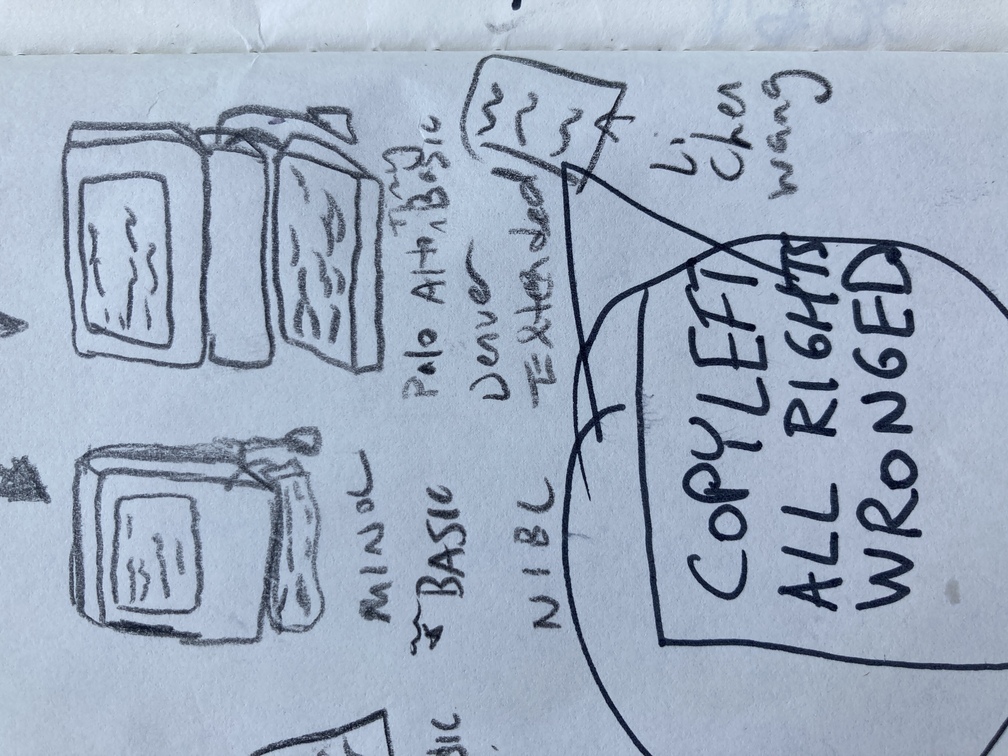 MINOL
BASIC
NIBL
SIC
Palo Alto Tiny Basic
Denver
Extended
Li
Chen
Wang
COPYLEFT
ALL RIGHTS
WRONGED